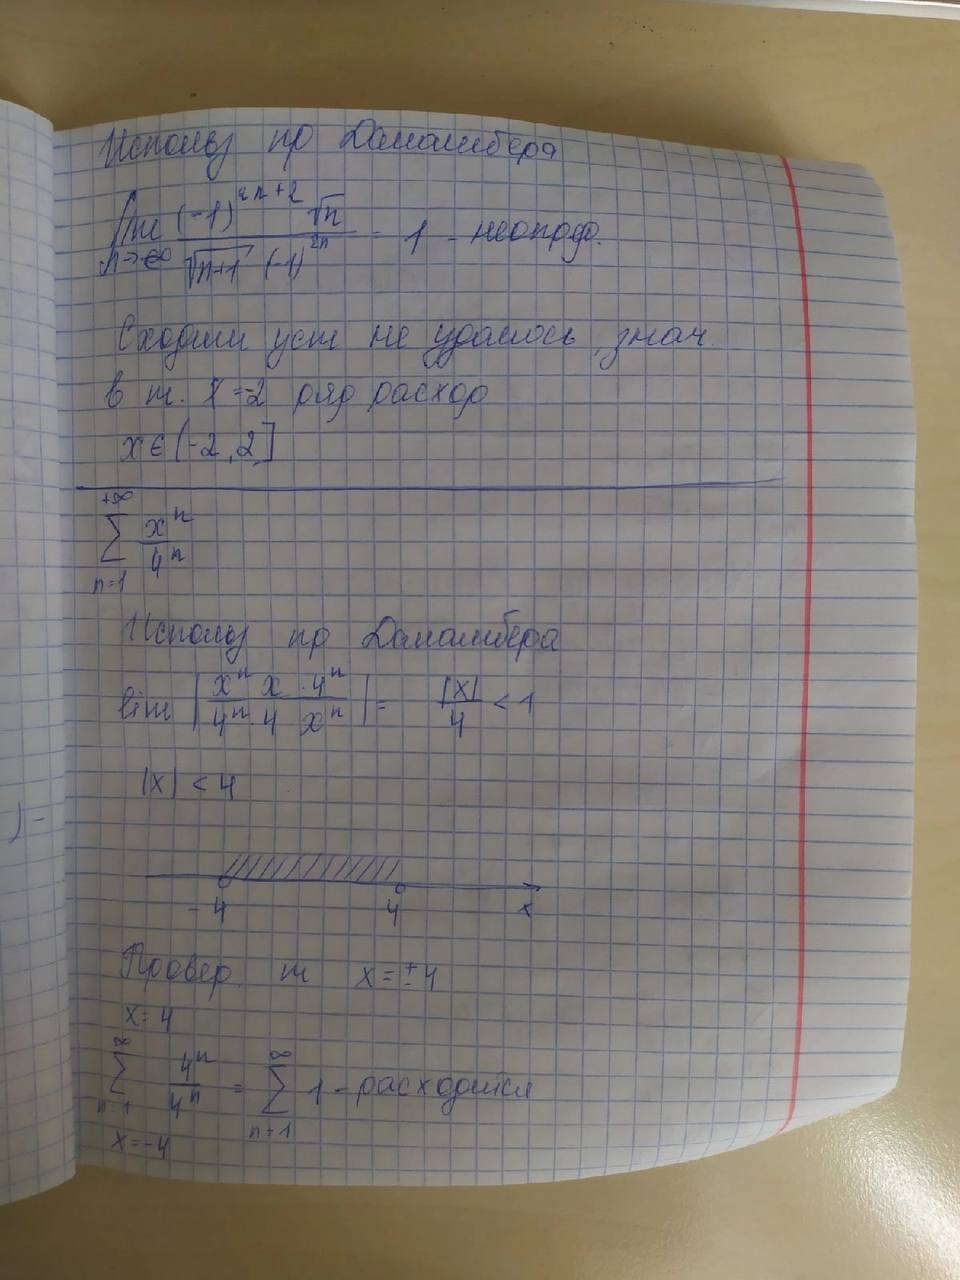 Использ пр Даламбера
lim n→∞ (-1)^{2n+2} √n / √(n+1) (-1)^{2n} = 1 - неопред.
Сходим уст не удалось, знач.
в т. x = -2 ряд расход
x ∈ (-2, 2]
+∞ ∑ n=1 x^n / 4^n
Использ пр Даламбера
lim | x^n x · 4^n / 4^n · 4 x^n | = |x| / 4 < 1
|x| < 4
-4 4 x
Провер. т x = ± 4
x = 4
∞ ∑ n=1 4^n / 4^n = ∞ ∑ n=1 1 - расходится
x = -4
) -